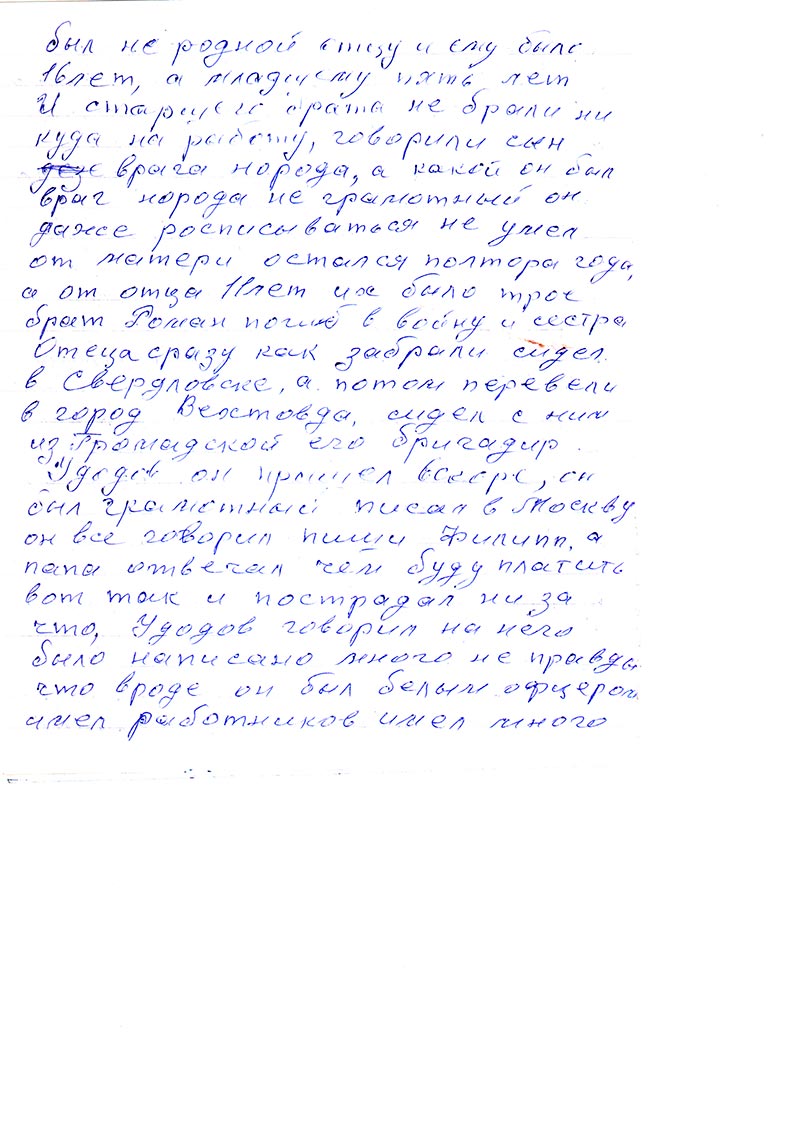 был не родной отцу и ему было
16 лет, а младшему пять лет
И старшего брата не брали ни
куда на работу, говорили сын
врага норода, а какой он был
враг норода не грамотный он
даже росписываться не умел
от матери остался полтора года,
а от отца 11 лет их было трое
брат Роман погиб в войну и сестра
Отеца сразу как забрали сидел
в Свердловске, а потом перевели
в город сидел с ним
из Громадской его бригадир.
Удодов он пришел вскоре, он
был грамотный писал в Москву
он все говорил пиши Филипп, а
папа отвечал чем буду платить
вот так и пострадал ни за
что, Удодов говорил на него
было написано много не правды
что вроде он был белым офцером
имел работников имел много